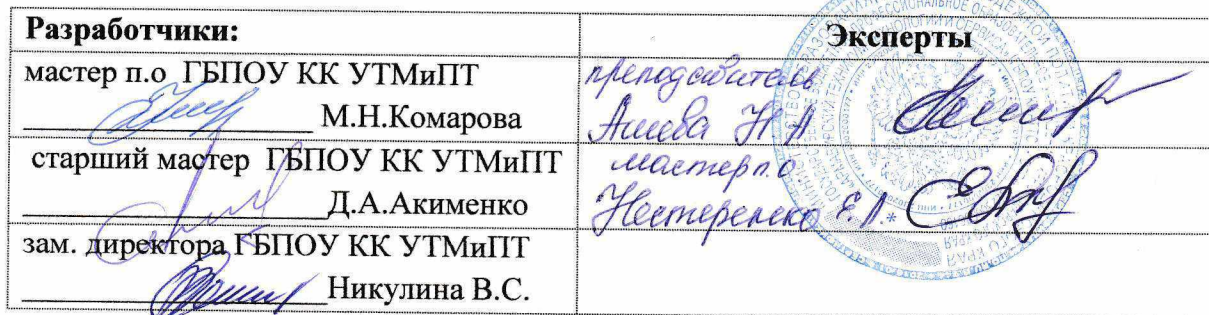 Разработчики:
Эксперты
мастер п.о ГБПОУ КК УТМиПТ
М.Н.Комарова
преподаватель
Н А
старший мастер ГБПОУ КК УТМиПТ
Д.А.Акименко
мастер п.о
Нестеренко Е.А
зам. директора ГБПОУ КК УТМиПТ
Никулина В.С.